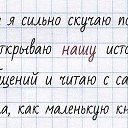 я сильно скучаю по
открываю нашу исто
щений и читаю с са
а, как маленькую кн